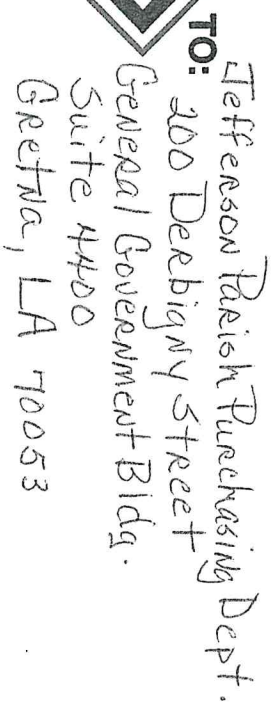 TO: Jefferson Parish Purchasing Dept.
200 Derbigny Street
General Government Bldg.
Suite 4400
Gretna, LA 70053